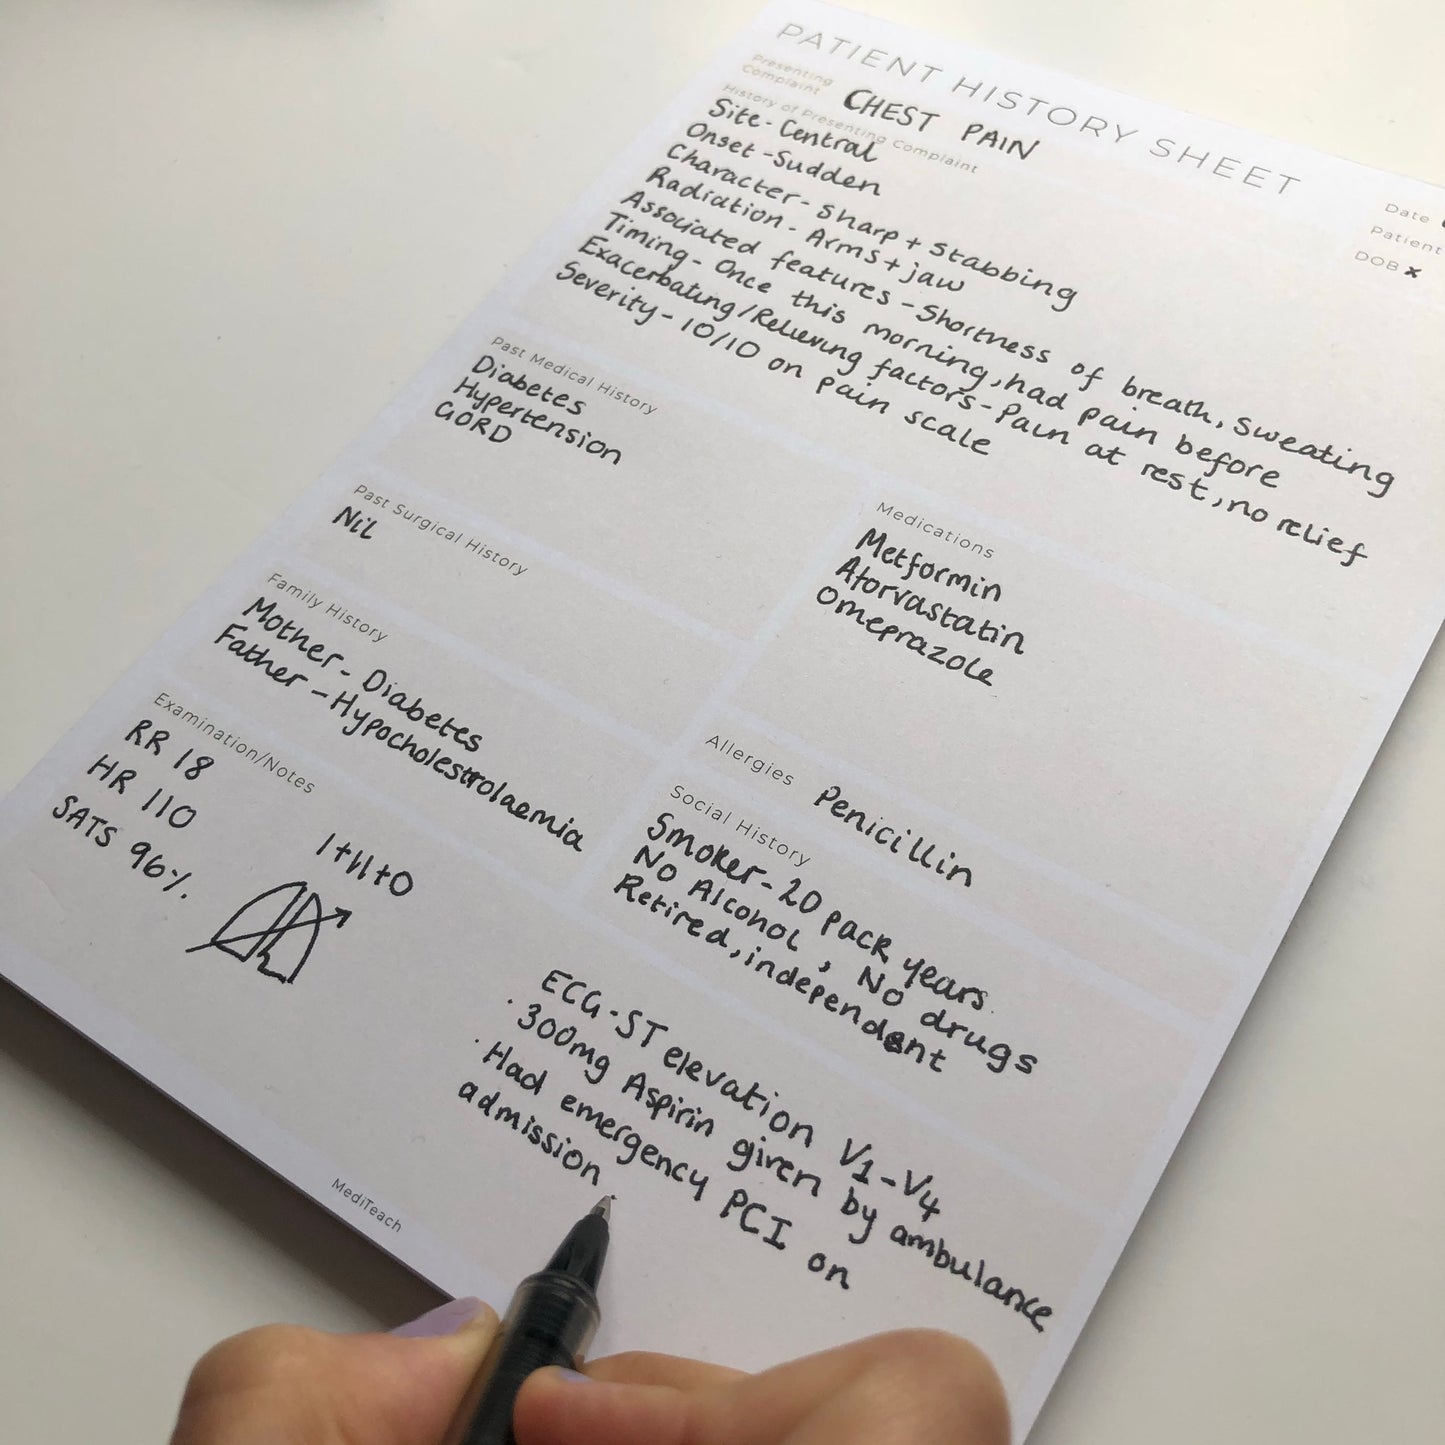 PATIENT HISTORY SHEET
Presenting Complaint
CHEST PAIN
Date
Patient
DOB x
History of Presenting Complaint
Site - Central
Onset - Sudden
Character - Sharp + Stabbing
Radiation - Arms + jaw
Associated features - Shortness of breath, Sweating
Timing - Once this morning, had pain before
Exacerbating/Relieving factors - Pain at rest, no relief
Severity - 10/10 on pain scale
Past Medical History
Diabetes
Hypertension
GORD
Medications
Metformin
Atorvastatin
Omeprazole
Past Surgical History
Nil
Family History
Mother - Diabetes
Father - Hypocholestrolaemia
Allergies Penicillin
Social History
Smoker - 20 pack years
No Alcohol, No drugs
Retired, independent
Examination/Notes
RR 18
HR 110
SATS 96%
I+II+O
ECG - ST elevation V1-V4
· 300mg Aspirin given by ambulance
· Had emergency PCI on
admission
MediTeach